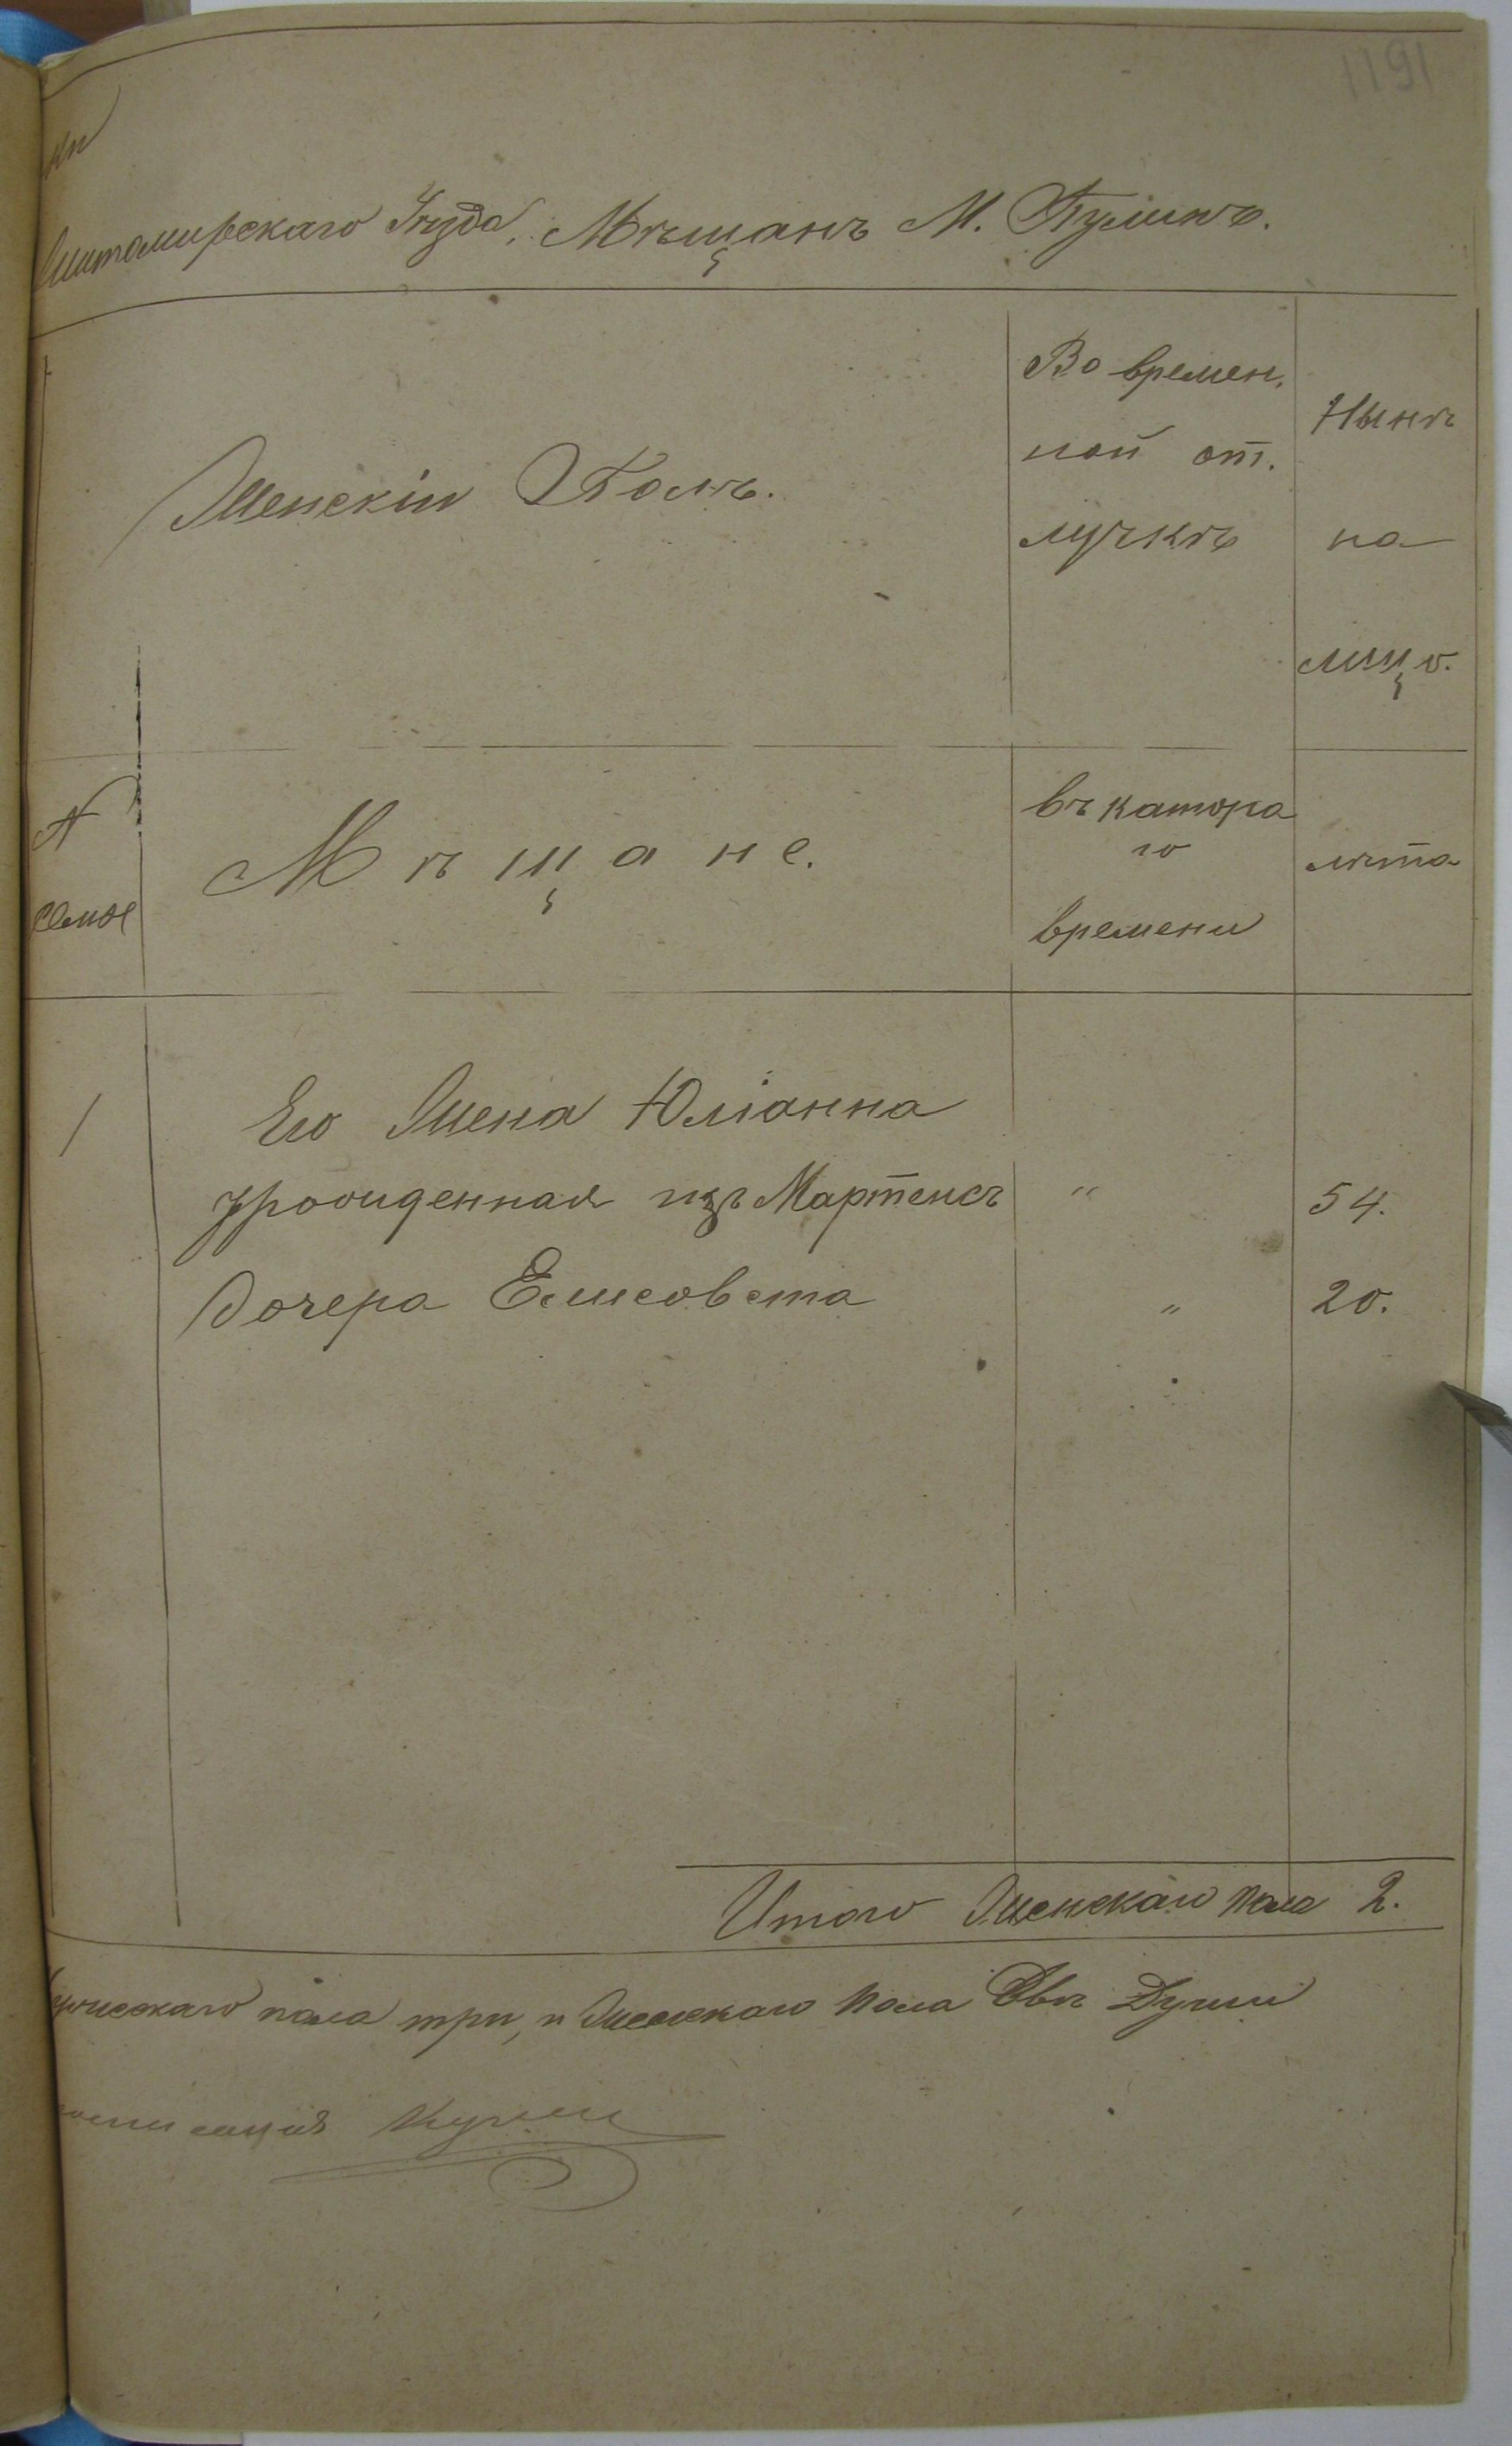 1191
ки
Житомирскаго Уѣзда, Мѣщанъ М. Пулинъ.
Женскій Полъ.
Во времен.
ной от.
лучкѣ
Нынѣ
на
лицо.
№
семьи
Мѣщане.
въ катора
го
времени
лѣта
1
Его Жена Юліанна
урожденная изъ Мартенсъ " 54.
Дочера Елисовета " 20.
Итого Женскаго пола 2.
пола три, и Женскаго пола Двѣ Души